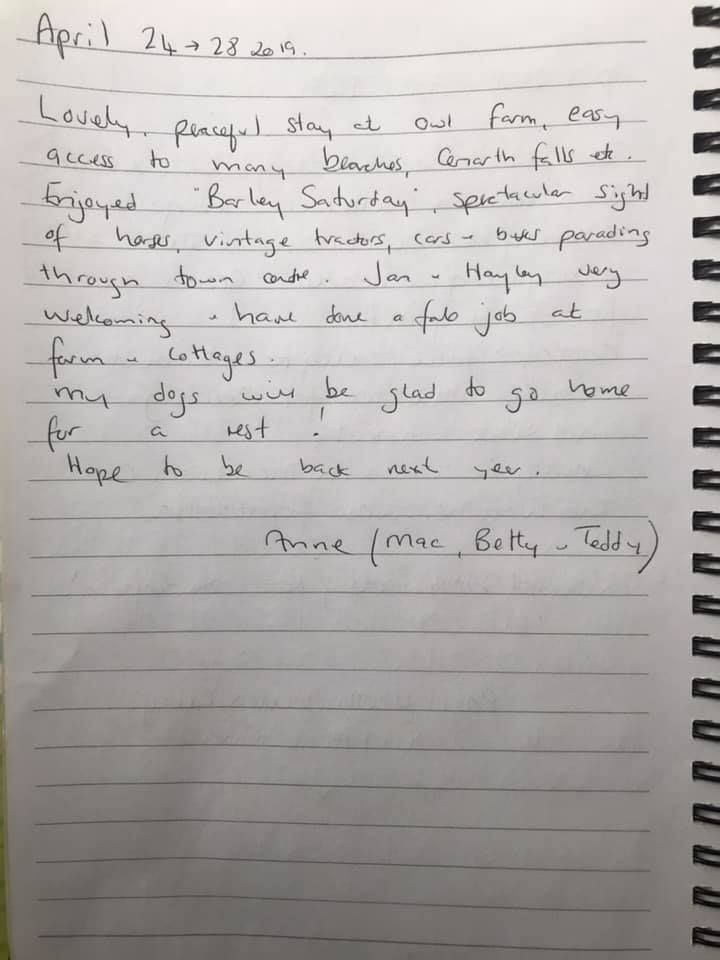 April 24 → 28 2019.
Lovely, peaceful stay at Owl Farm, easy
access to many beaches, Cenarth falls etc.
Enjoyed "Barley Saturday", spectacular sight
of horses, vintage tractors, cars + bikes parading
through town centre. Jan + Hayley very
welcoming + have done a fab job at
farm + cottages.
My dogs will be glad to go home
for a rest!
Hope to be back next year.
Anne (Mac, Betty + Teddy)